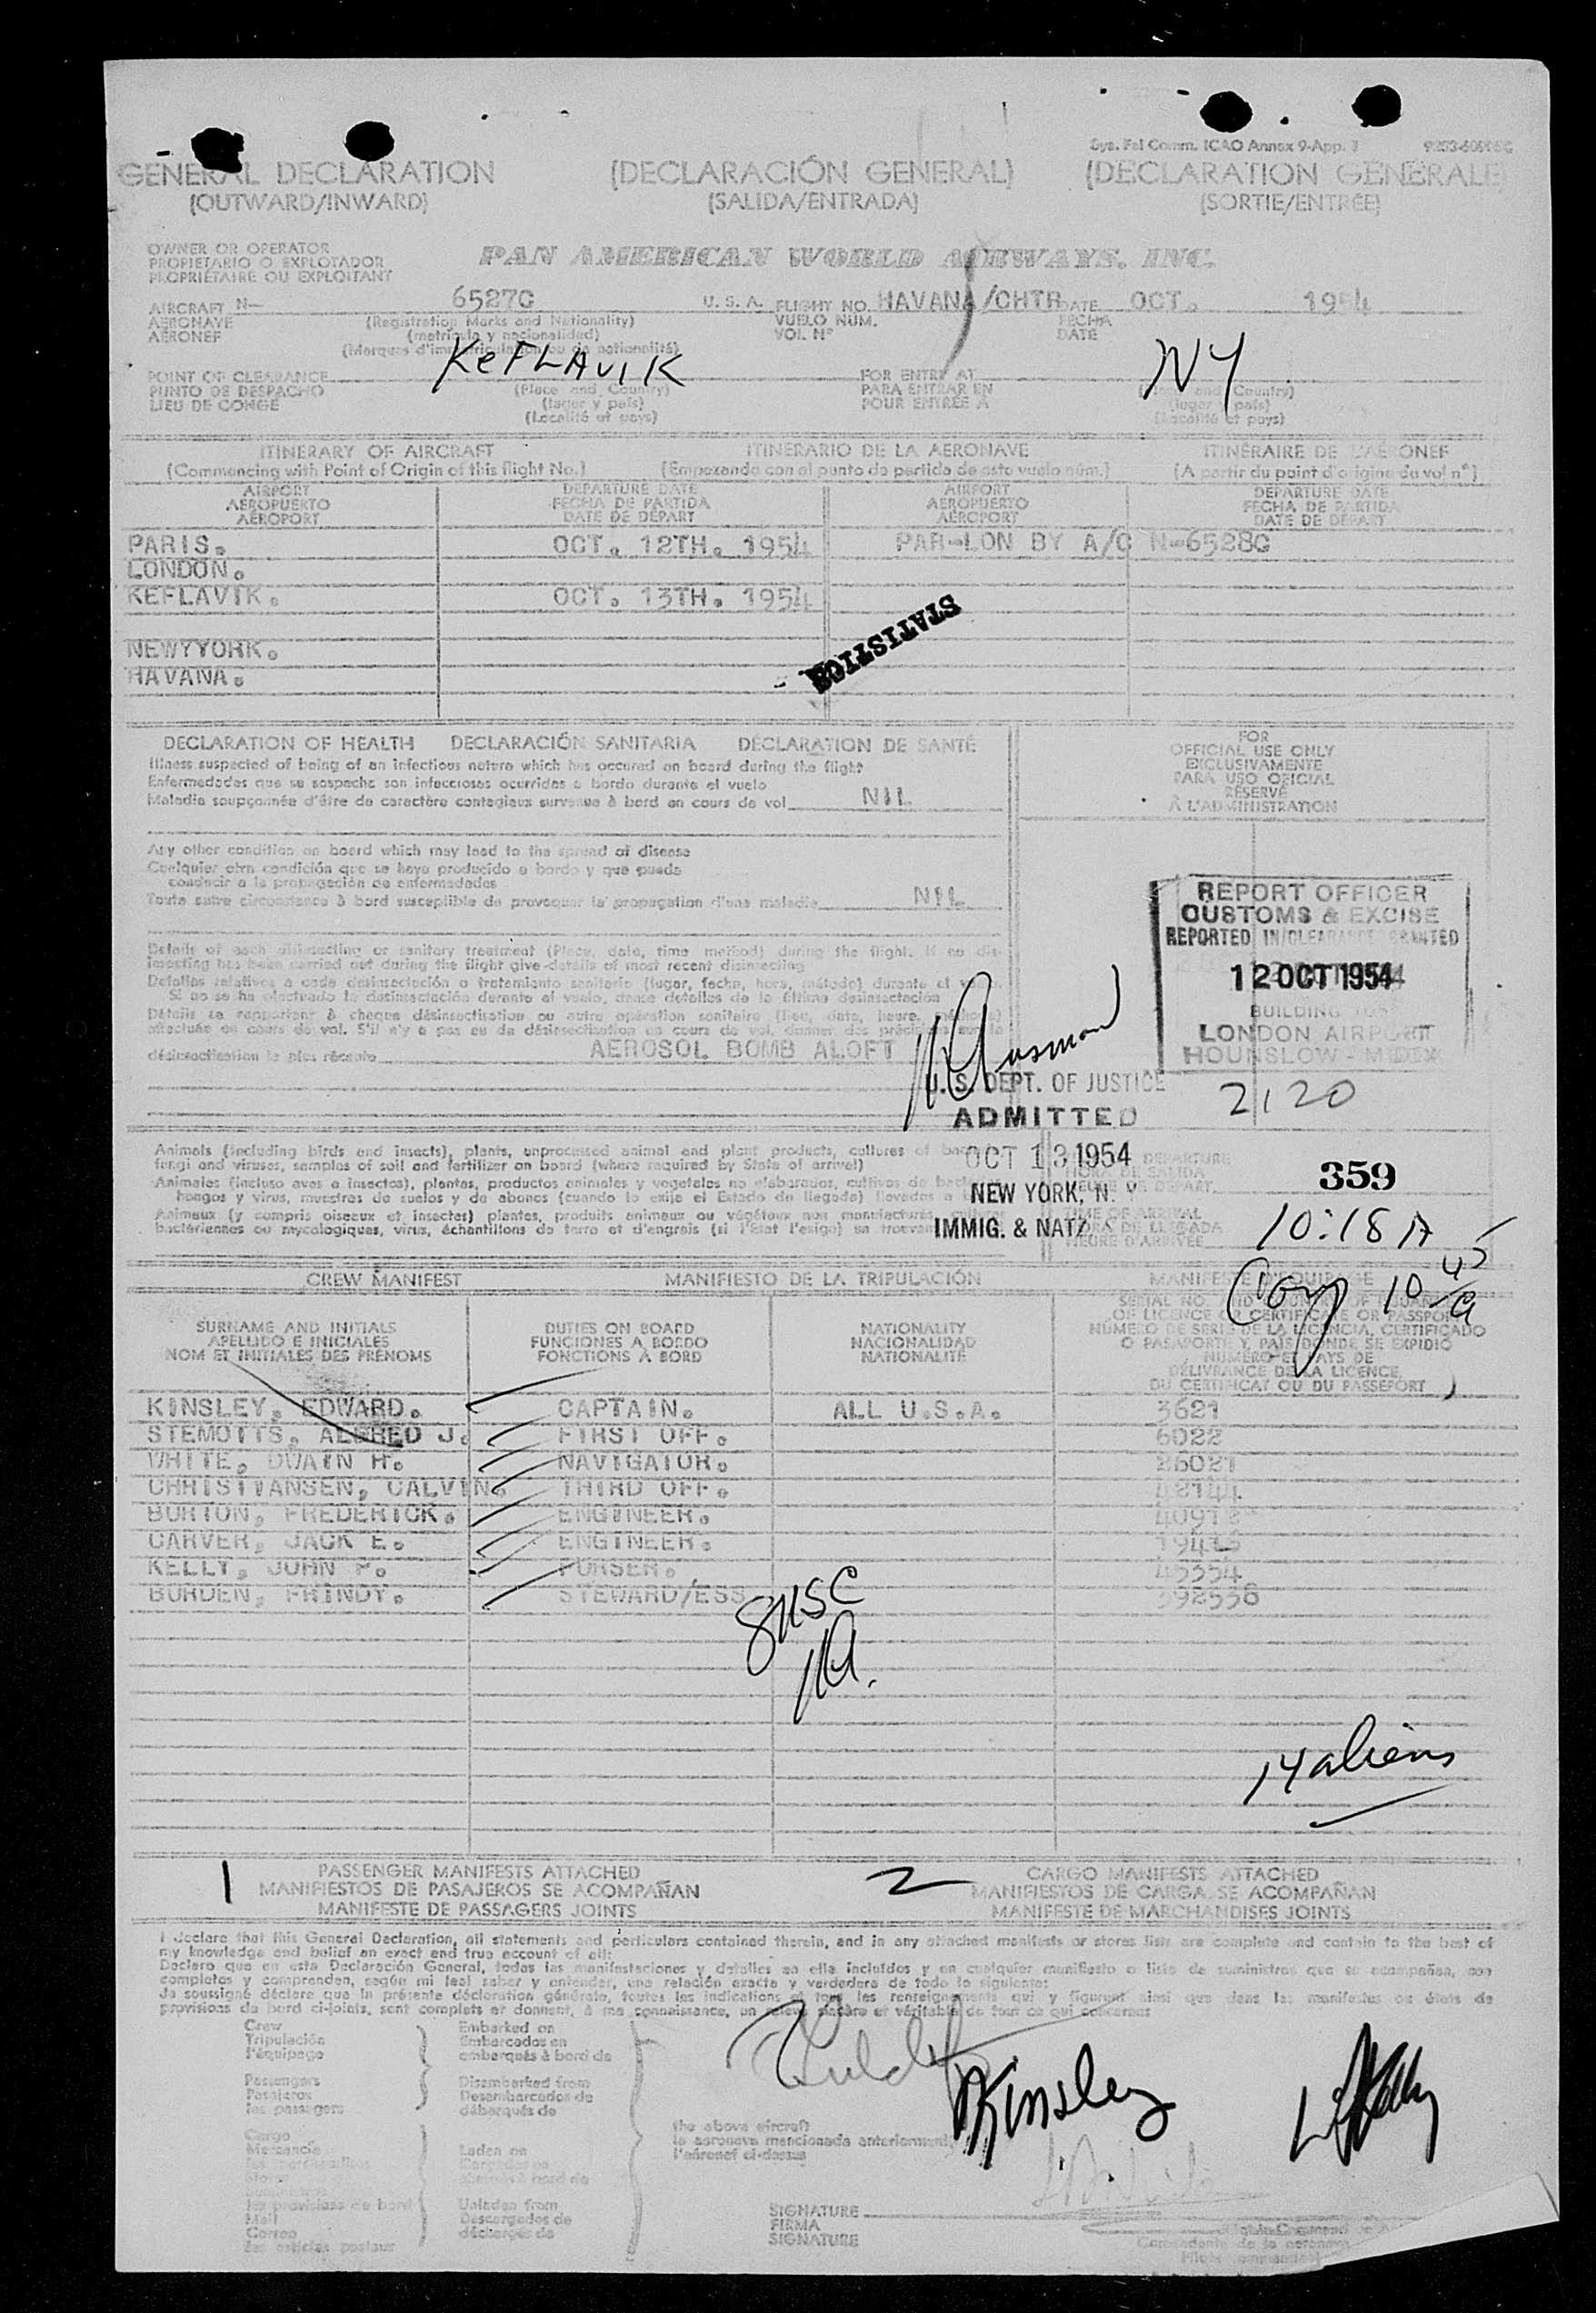 Sys. Fel Comm. ICAO Annex 9-App. 1
GENERAL DECLARATION (DECLARACIÓN GENERAL) (DECLARATION GENERALE)
(OUTWARD/INWARD) (SALIDA/ENTRADA) (SORTIE/ENTRÉE)
OWNER OR OPERATOR
PROPIETARIO O EXPLOTADOR
PROPRIÉTAIRE OU EXPLOITANT
PAN AMERICAN WORLD AIRWAYS, INC.
AIRCRAFT N— 6527C U. S. A. FLIGHT NO. HAVANA/CHTR DATE OCT. 1954
AERONAVE (Registration Marks and Nationality) VUELO NUM. FECHA
AÉRONEF (matrícula y nacionalidad) VOL Nº DATE
(Marques d'immatriculation ou de nationalité)
POINT OF CLEARANCE KEFLAVIK FOR ENTRY AT NY
PUNTO DE DESPACHO (Place and Country) PARA ENTRAR EN (Place and Country)
LIEU DE CONGÉ (lugar y país) POUR ENTRÉE À (lugar y país)
(Localité et pays) (Localité et pays)
ITINERARY OF AIRCRAFT ITINERARIO DE LA AERONAVE ITINÉRAIRE DE L'AÉRONEF
(Commencing with Point of Origin of this flight No.) (Empezando con el punto de partida de este vuelo núm.) (A partir du point d'origine du vol nº)
AIRPORT DEPARTURE DATE AIRPORT DEPARTURE DATE
AEROPUERTO FECHA DE PARTIDA AEROPUERTO FECHA DE PARTIDA
AÉROPORT DATE DE DÉPART AÉROPORT DATE DE DÉPART
PARIS. OCT. 12TH. 1954 PAR-LON BY A/C N-6528C
LONDON.
KEFLAVIK. OCT. 13TH. 1954
STATISTICS
NEWYYORK.
HAVANA.
DECLARATION OF HEALTH DECLARACIÓN SANITARIA DÉCLARATION DE SANTÉ
Illness suspected of being of an infectious nature which has occured on board during the flight
Enfermedades que se sospeche son infecciosas ocurridas a bordo durante el vuelo
Maladie soupçonnée d'être de caractère contagieux survenue à bord en cours de vol NIL
FOR
OFFICIAL USE ONLY
EXCLUSIVAMENTE
PARA USO OFICIAL
RÉSERVÉ
À L'ADMINISTRATION
Any other condition on board which may lead to the spread of disease
Cualquier otra condición que se haya producido a bordo y que pueda
conducir a la propagación de enfermedades
Toute autre circonstance à bord susceptible de provoquer la propagation d'une maladie NIL
REPORT OFFICER
CUSTOMS & EXCISE
REPORTED IN/CLEARANCE GRANTED
12 OCT 1954
BUILDING
LONDON AIRPORT
HOUNSLOW - MIDDX
2120
Details of each disinsecting or sanitary treatment (Place, date, time method) during the flight. If no dis-
insecting has been carried out during the flight give details of most recent disinsecting
Detalles relativos a cada desinsectación o tratamiento sanitario (lugar, fecha, hora, método) durante el vuelo.
Si no se ha efectuado la desinsectación durante el vuelo, dense detalles de la última desinsectación
Détails se rapportant à chaque désinsectisation ou autre opération sanitaire (lieu, date, heure, méthode)
effectuée en cours de vol. S'il n'y a pas eu de désinsectisation en cours de vol, donner des précisions sur la
désinsectisation la plus récente AEROSOL BOMB ALOFT
U. S. DEPT. OF JUSTICE
ADMITTED
OCT 13 1954
NEW YORK, N. Y
IMMIG. & NATZ
Animals (including birds and insects), plants, unprocessed animal and plant products, cultures of bacteria,
fungi and viruses, samples of soil and fertilizer on board (where required by State of arrival)
Animales (incluso aves e insectos), plantas, productos animales y vegetales no elaborados, cultivos de bacterias,
hongos y virus, muestras de suelos y de abonos (cuando lo exija el Estado de llegada) llevados a bordo
Animaux (y compris oiseaux et insectes) plantes, produits animaux ou végétaux non manufacturés, cultures
bactériennes ou mycologiques, virus, échantillons de terre et d'engrais (si l'État l'exige) se trouvant
DEPARTURE
HORA DE SALIDA
HEURE DE DÉPART
359
TIME OF ARRIVAL
HORA DE LLEGADA
HEURE D'ARRIVÉE
10:18 A
10 45/a
CREW MANIFEST MANIFIESTO DE LA TRIPULACIÓN MANIFESTE D'ÉQUIPAGE
SURNAME AND INITIALS DUTIES ON BOARD NATIONALITY
APELLIDO E INICIALES FUNCIONES A BORDO NACIONALIDAD
NOM ET INITIALES DES PRÉNOMS FONCTIONS À BORD NATIONALITÉ
SERIAL NO. AND COUNTRY OF ISSUANCE
OF LICENCE OR CERTIFICATE OR PASSPORT
NÚMERO DE SERIE DE LA LICENCIA, CERTIFICADO
O PASAPORTE Y PAÍS DONDE SE EXPIDIÓ
NUMÉRO ET PAYS DE
DÉLIVRANCE DE LA LICENCE,
DU CERTIFICAT OU DU PASSEPORT
KINSLEY, EDWARD. CAPTAIN. ALL U.S.A. 3621
STEMOTTS, ALDRED J. FIRST OFF. 6022
WHITE, DWAIN H. NAVIGATOR. 26021
CHRISTIANSEN, CALVIN. THIRD OFF.
BURTON, FREDERICK. ENGINEER.
CARVER, JACK E. ENGINEER.
KELLY, JOHN P. PURSER. 45354
BURDEN, FRINDY. STEWARD/ESS 392538
8 USC
14 aliens
1 PASSENGER MANIFESTS ATTACHED 2 CARGO MANIFESTS ATTACHED
MANIFIESTOS DE PASAJEROS SE ACOMPAÑAN MANIFIESTOS DE CARGA SE ACOMPAÑAN
MANIFESTE DE PASSAGERS JOINTS MANIFESTE DE MARCHANDISES JOINTS
I declare that this General Declaration, all statements and particulars contained therein, and in any attached manifests or stores lists are complete and contain to the best of
my knowledge and belief an exact and true account of all:
Declaro que en esta Declaración General, todas las manifestaciones y detalles en ella incluídos y en cualquier manifiesto o lista de suministros que se acompañan, son
completos y comprenden, según mi leal saber y entender, una relación exacta y verdadera de todo lo siguiente:
Je soussigné déclare que la présente déclaration générale, toutes les indications et tous les renseignements qui y figurent ainsi que dans les manifestes ou états de
provisions de bord ci-joints, sont complets et donnent, à ma connaissance, un relevé sincère et véritable de tout ce qui concerne:
Crew Embarked on
Tripulación Embarcados en
l'équipage embarqués à bord de
Passengers Disembarked from
Pasajeros Desembarcados de
les passagers débarqués de
Kinsley
the above aircraft
la aeronave mencionada anteriormente
l'aéronef ci-dessus
Cargo
Mercancía Laden on
Unladen from
les provisions de bord
Mail Descargados de
Correo déchargés de
les articles postaux
SIGNATURE
FIRMA
SIGNATURE